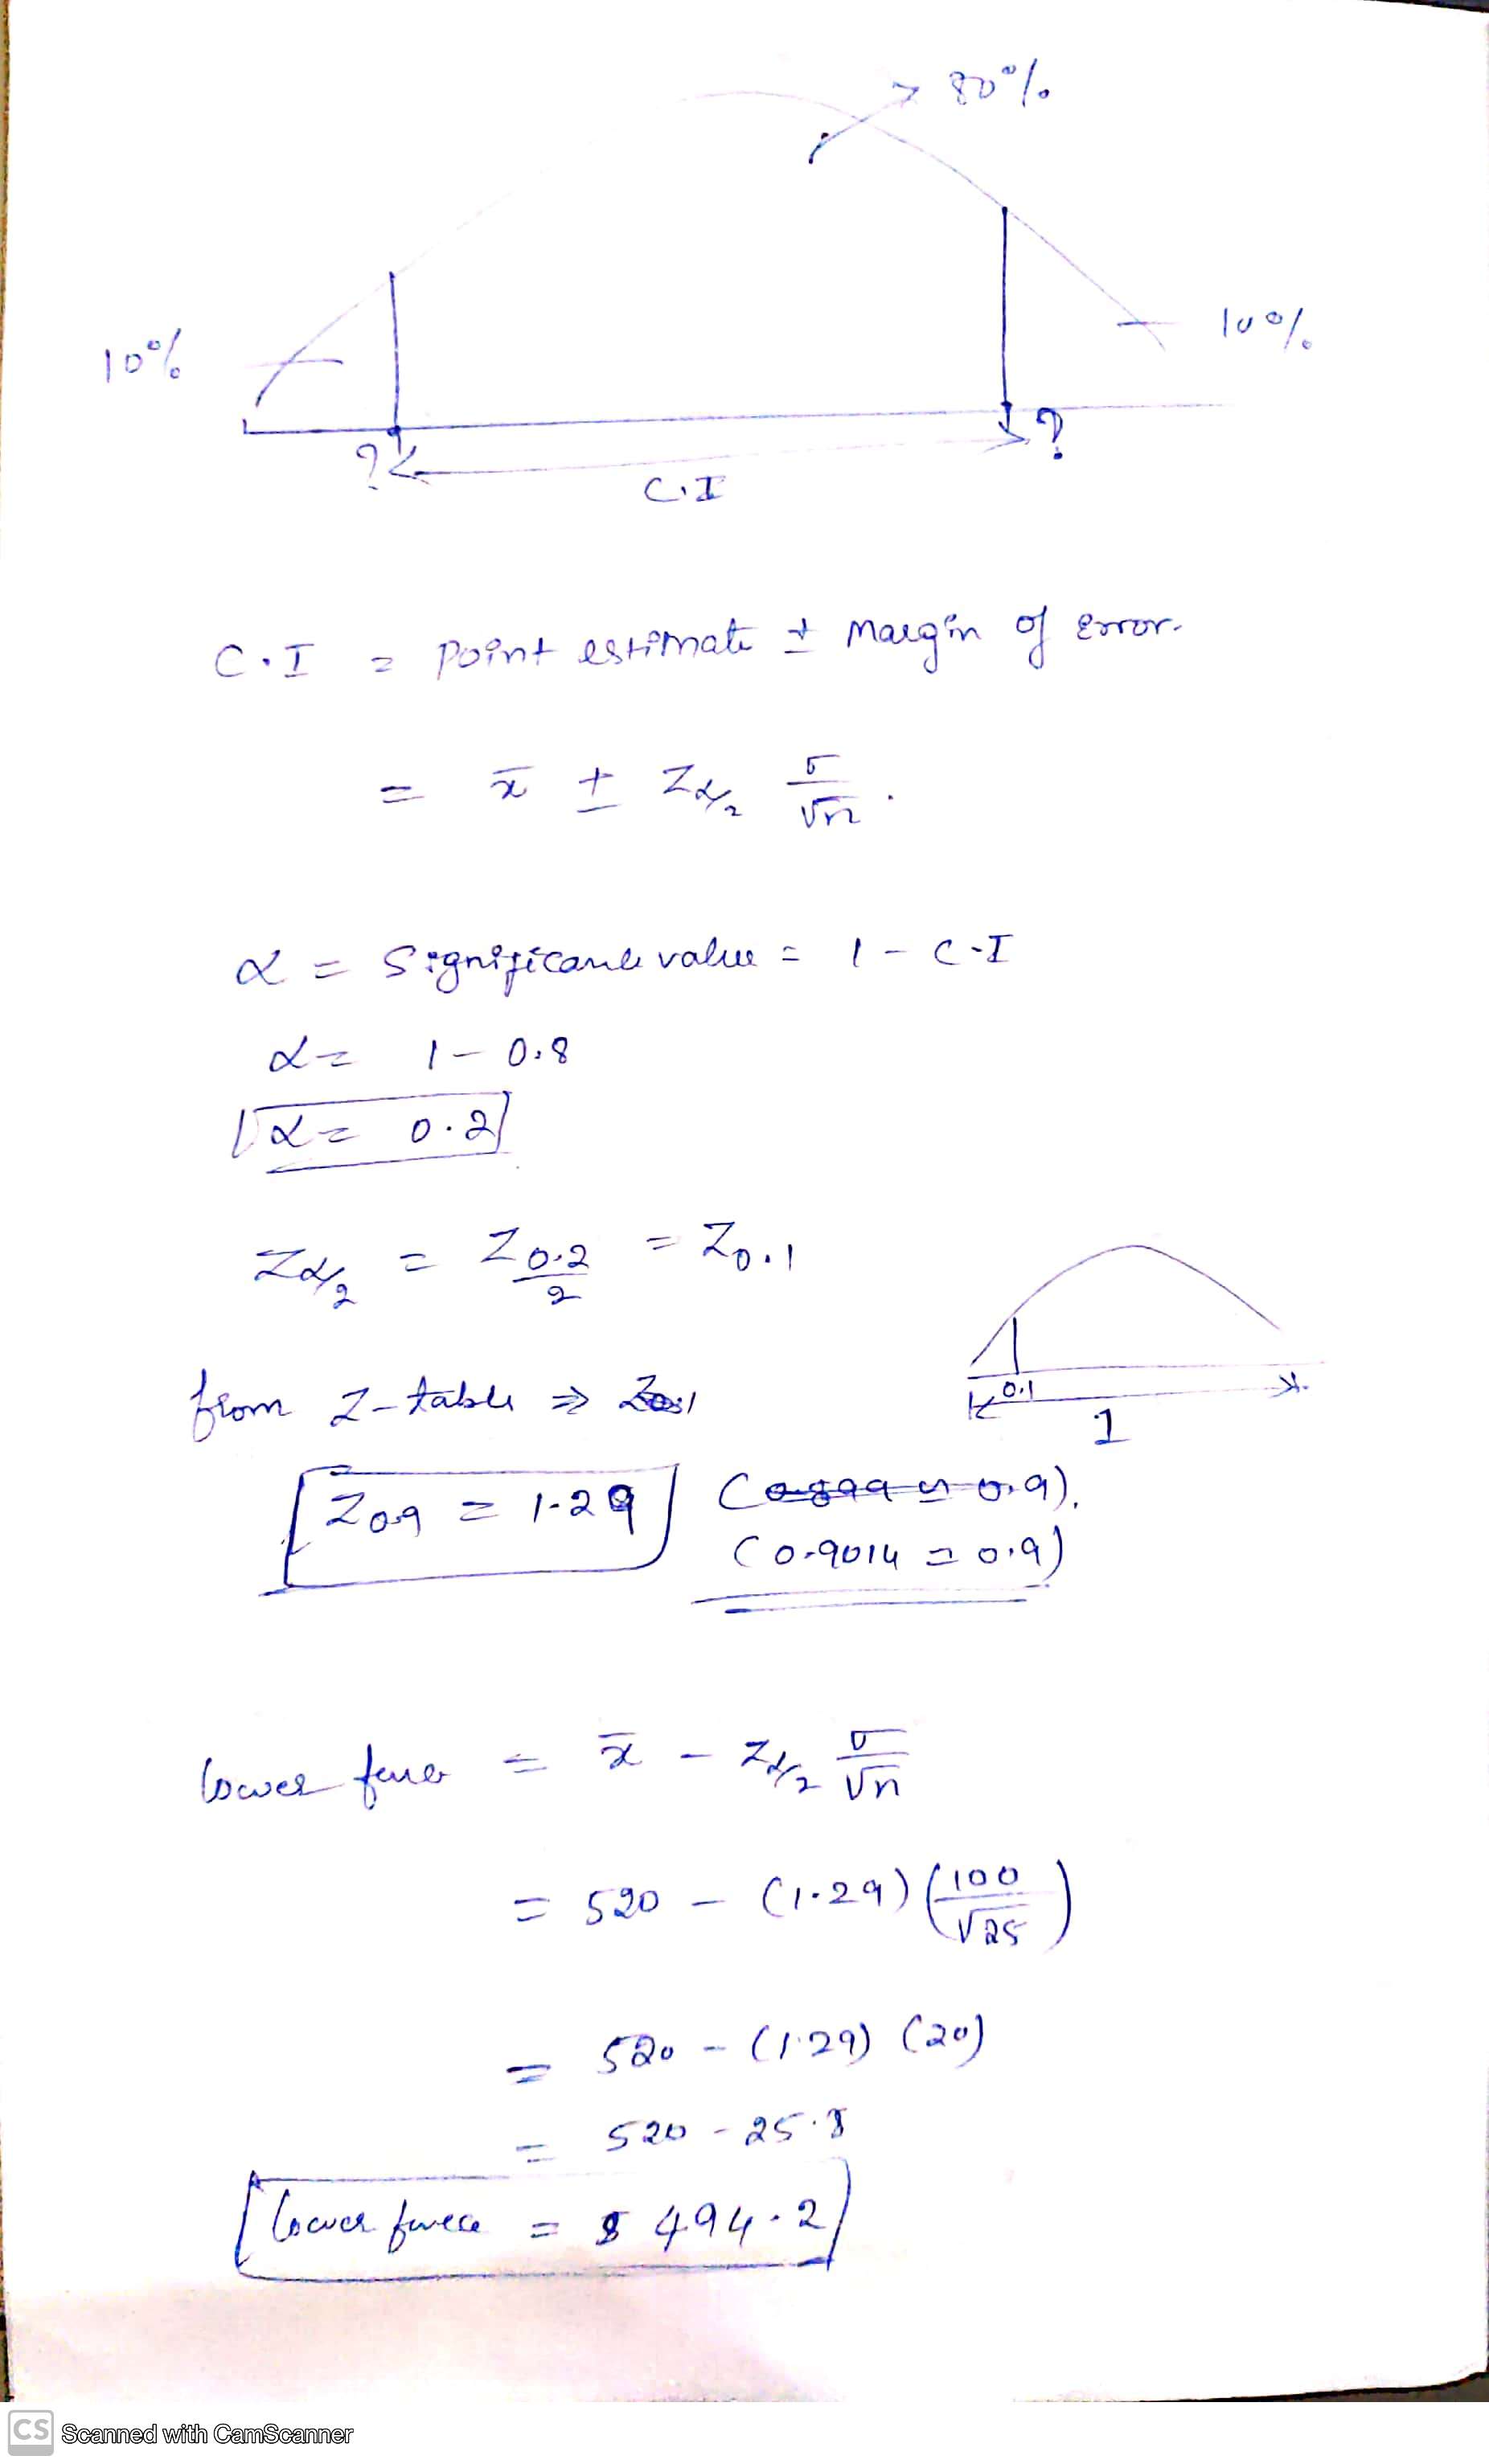 80%
10%
10%
? ?
C.I
C.I = Point estimate ± Margin of error.
= x̄ ± Zα/2 σ/√n .
α = Significance value = 1 - C.I
α = 1 - 0.8
α = 0.2
Zα/2 = Z0.2/2 = Z0.1
0.1
1
from Z-table ⇒ Z0.1
Z0.9 = 1.29 (0.899 ≈ 0.9).
(0.9014 = 0.9)
lower fence = x̄ - Zα/2 σ/√n
= 520 - (1.29) (100/√25)
= 520 - (1.29) (20)
= 520 - 25.8
lower fence = 494.2
CS Scanned with CamScanner